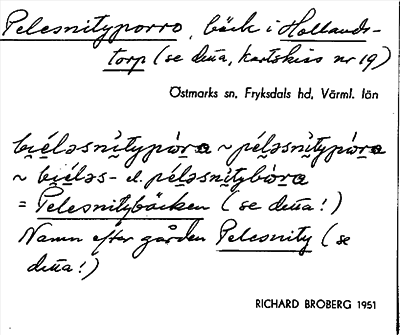 Pelesnityporro, bäck i Hollands-
torp (se detta, kartskiss nr 19)
Östmarks sn, Fryksdals hd, Värml. län
bi̯éləsnìtypòra ~ péləsnìtypòra
~ bi̯éləs- el. péləsnìtybòra
= Pelesnitybäcken (se detta!)
Namn efter gården Pelesnity (se
detta!)
RICHARD BROBERG 1951